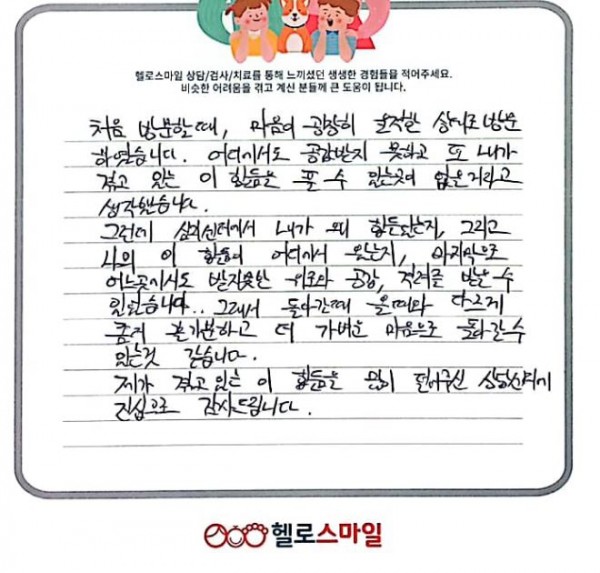 헬로스마일 상담/검사/치료를 통해 느끼셨던 생생한 경험들을 적어주세요.
비슷한 어려움을 겪고 계신 분들께 큰 도움이 됩니다.
처음 방문할때, 마음이 굉장히 울적한 상태로 방문
하였습니다. 어디에서도 공감받지 못하고 또 내가
겪고 있는 이 힘듦을 풀 수 있는곳이 없을거라고
생각했습니다.
그런데 심리센터에서 내가 왜 힘든지, 그리고
나의 이 힘듦이 어디에서 왔는지, 마지막으로
어느곳에서도 받지못한 위로와 공감, 격려를 받을 수
있었습니다.. 그래서 돌아갈때 올때와 다르게
좀 더 가벼운 마음으로 돌아갈수
있는것 같습니다.
제가 겪고있는 이 힘듦을 많이 덜어주신 상담센터에
진심으로 감사드립니다.
헬로스마일